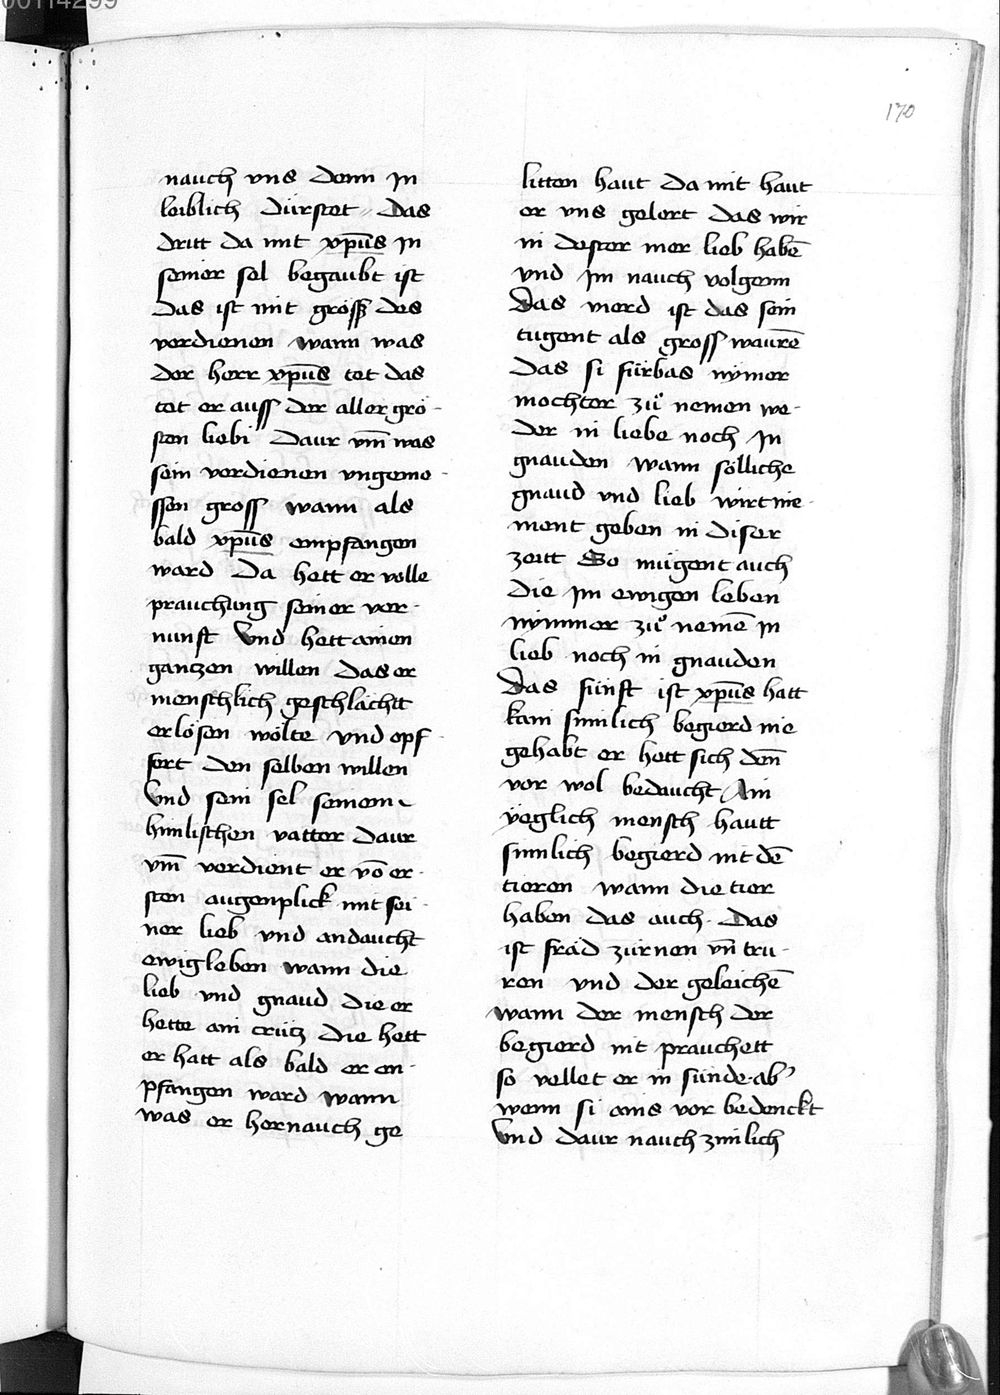 170
nauch vns denn Jn
leiblich dürstet Das
dritt da mit xp̄us Jn
seiner sel begaubt ist
Das ist mit gröss des
verdienen wann was
der herr xp̄us tet das
tet er auss der aller grö-
sten liebi Daur vm̄ was
sein verdienen vngeme-
ssen gross wann als
bald xp̄us empfangen
ward Da hett er volle
prauchung seiner ver-
nunft Vnd hett ainen
gantzen willen das er
menschlich geschlächtt
erlösen wölte vnd opf-
fert den selben willen
Vnd sein sel seinem
himlischen vatter Daur
vm̄ verdient er vō er-
sten augenplick mit sei-
ner lieb vnd andaucht
ewig leben wann die
lieb vnd gnaud die er
hette am crütz die hett
er hatt als bald er en-
pfangen ward wann
was er hernauch ge
litten haut Da mit haut
er vns gelert das wir
in dester mer lieb habē
vnd Jm nauch volgenn
Das vierd ist das sein
tugent als gross waurē
das si fürbas nymer
mochter zů nemen we-
der in liebe noch Jn
gnauden wann sölliche
gnaud vnd lieb wirt nie-
ment geben in diser
zeitt So mügent auch
die Jm ewigen leben
nymmer zů nemē Jn
lieb noch in gnauden
Das fünft ist xp̄us hatt
kain sinnlich begierd nie
gehabt er hett sich den̄
vor wol bedaucht Ain
yeglich mensch hautt
sinnlich begierd mit dē
tieren wann die tier
haben das auch Das
ist fräd zürnen vn̄ tru-
ren vnd der geleichē
wann der mensch der
begierd nit prauchett
so vellet er in sünde ab
wenn si ains vor bedenckt
Vnd daur nauch zimlich